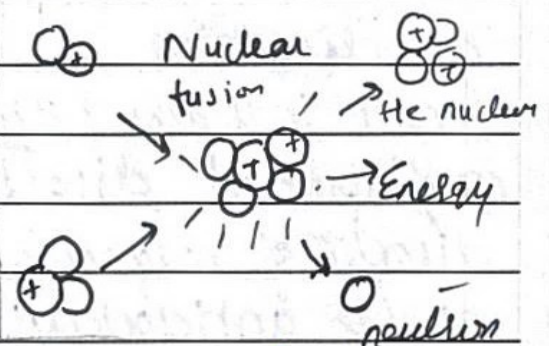 Nuclear
fusion
He nucleus
Energy
neutron